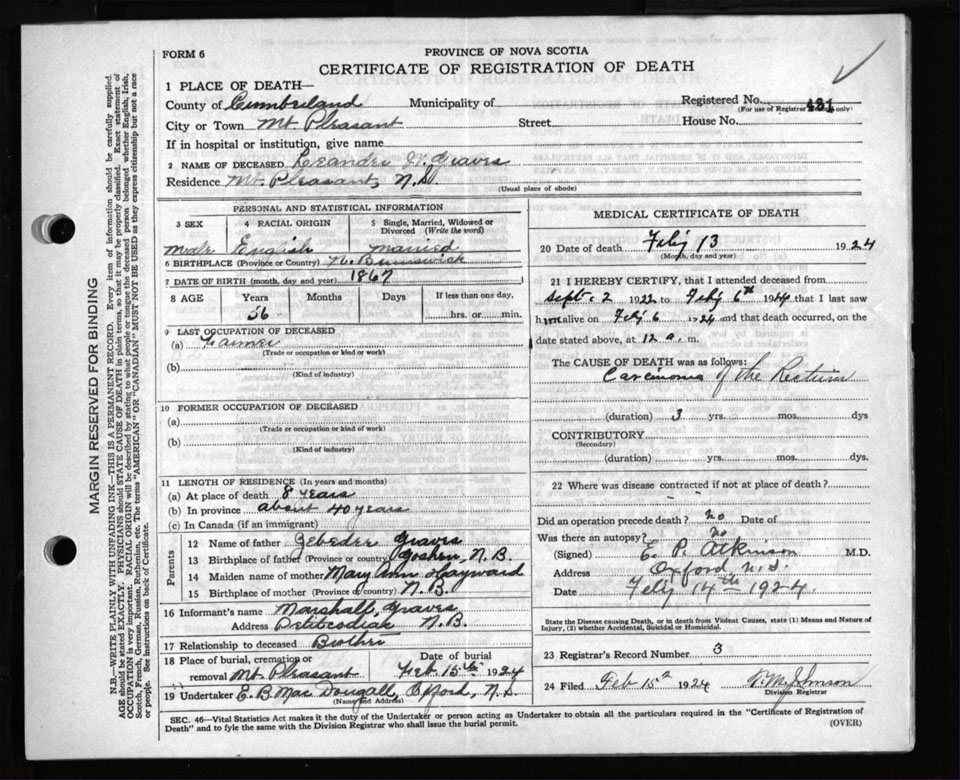 FORM 6
PROVINCE OF NOVA SCOTIA
CERTIFICATE OF REGISTRATION OF DEATH
1 PLACE OF DEATH—
County of Cumberland Municipality of Registered No. 131
(For use of Registrar only)
City or Town Mt. Pleasant Street House No.
If in hospital or institution, give name
2 NAME OF DECEASED Leander W. Graves
Residence Mt. Pleasant, N.S.
(Usual place of abode)
PERSONAL AND STATISTICAL INFORMATION
3 SEX 4 RACIAL ORIGIN 5 Single, Married, Widowed or Divorced (Write the word)
Male English Married
6 BIRTHPLACE (Province or Country) N. Brunswick
7 DATE OF BIRTH (month, day and year) 1867
8 AGE Years Months Days If less than one day,
56 hrs. or min.
9 LAST OCCUPATION OF DECEASED
(a) Farmer
(Trade or occupation or kind or work)
(b)
(Kind of industry)
10 FORMER OCCUPATION OF DECEASED
(a)
(Trade or occupation or kind of work)
(b)
(Kind of industry)
11 LENGTH OF RESIDENCE (In years and months)
(a) At place of death 8 years
(b) In province about 40 years
(c) In Canada (if an immigrant)
Parents
12 Name of father Zebedee Graves
13 Birthplace of father (Province or country) Goshen, N.B.
14 Maiden name of mother Mary Ann Hayward
15 Birthplace of mother (Province or country) N.B.
16 Informant's name Marshall Graves
Address Petitcodiac N.B.
17 Relationship to deceased Brother
18 Place of burial, cremation or removal Mt. Pleasant Date of burial Feb. 15th 1924
19 Undertaker E. B. Mac Dougall, Oxford, N.S.
(Name and Address)
MEDICAL CERTIFICATE OF DEATH
20 Date of death Feby 13 1924
(Month, day and year)
21 I HEREBY CERTIFY, that I attended deceased from
Sept. 2 1922 to Feby 6th 1924 that I last saw
him alive on Feby 6 1924 and that death occurred, on the
date stated above, at 12 a. m.
The CAUSE OF DEATH was as follows:
Carcinoma of the Rectum
(duration) 3 yrs. mos. dys
CONTRIBUTORY
(Secondary)
(duration) yrs. mos. dys.
22 Where was disease contracted if not at place of death?
Did an operation precede death? no Date of
Was there an autopsy? no
(Signed) E. P. Atkinson M.D.
Address Oxford N.S.
Date Feby 14th 1924.
State the Disease causing Death, or in death from Violent Causes, state (1) Means and Nature of Injury, (2) whether Accidental, Suicidal or Homicidal.
23 Registrar's Record Number 3
24 Filed Feb 15th 1924 Johnson
Division Registrar
SEC. 46—Vital Statistics Act makes it the duty of the Undertaker or person acting as Undertaker to obtain all the particulars required in the "Certificate of Registration of
Death" and to fyle the same with the Division Registrar who shall issue the burial permit. (OVER)
MARGIN RESERVED FOR BINDING
N.B.—WRITE PLAINLY WITH UNFADING INK—THIS IS A PERMANENT RECORD. Every item of information should be carefully supplied.
AGE should be stated EXACTLY. PHYSICIANS should STATE CAUSE OF DEATH in plain terms, so that it may be properly classified. Exact statement of
OCCUPATION is very important. RACIAL ORIGIN will be described by stating to what people or tongue the deceased person belonged, whether English, Irish,
Scotch, French, German, Russian, Ruthenian, etc. The terms "AMERICAN" OR "CANADIAN" MUST NOT BE USED as they express citizenship but not a race
or people. See instructions on back of Certificate.